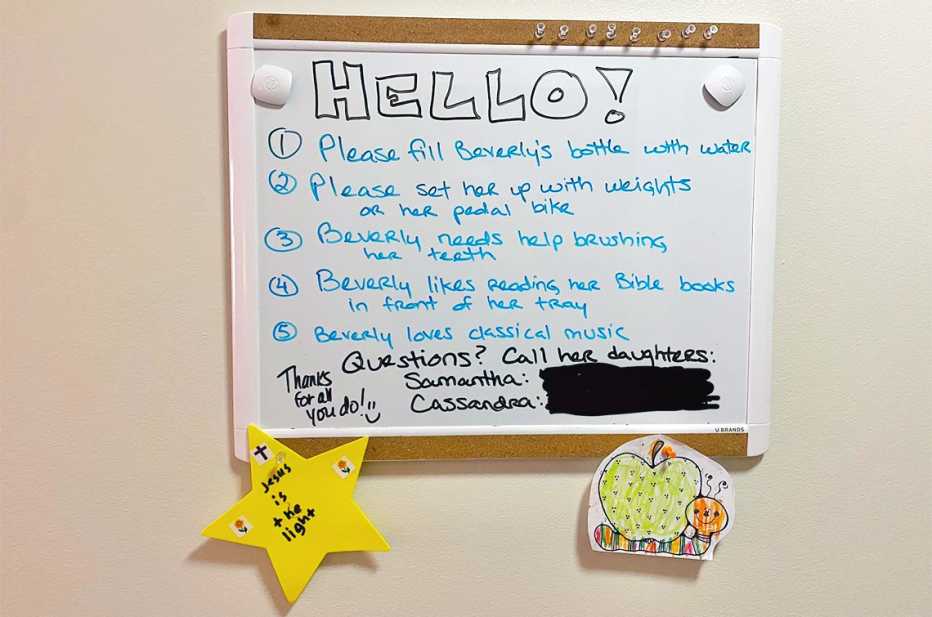 HELLO!
① Please fill Beverly's bottle with water
② Please set her up with weights
or her pedal bike
③ Beverly needs help brushing
her teeth
④ Beverly likes reading her Bible books
in front of her tray
⑤ Beverly loves classical music
Questions? Call her daughters:
Samantha:
Cassandra:
Thanks
for all
you do!
U BRANDS
Jesus
is
the
light